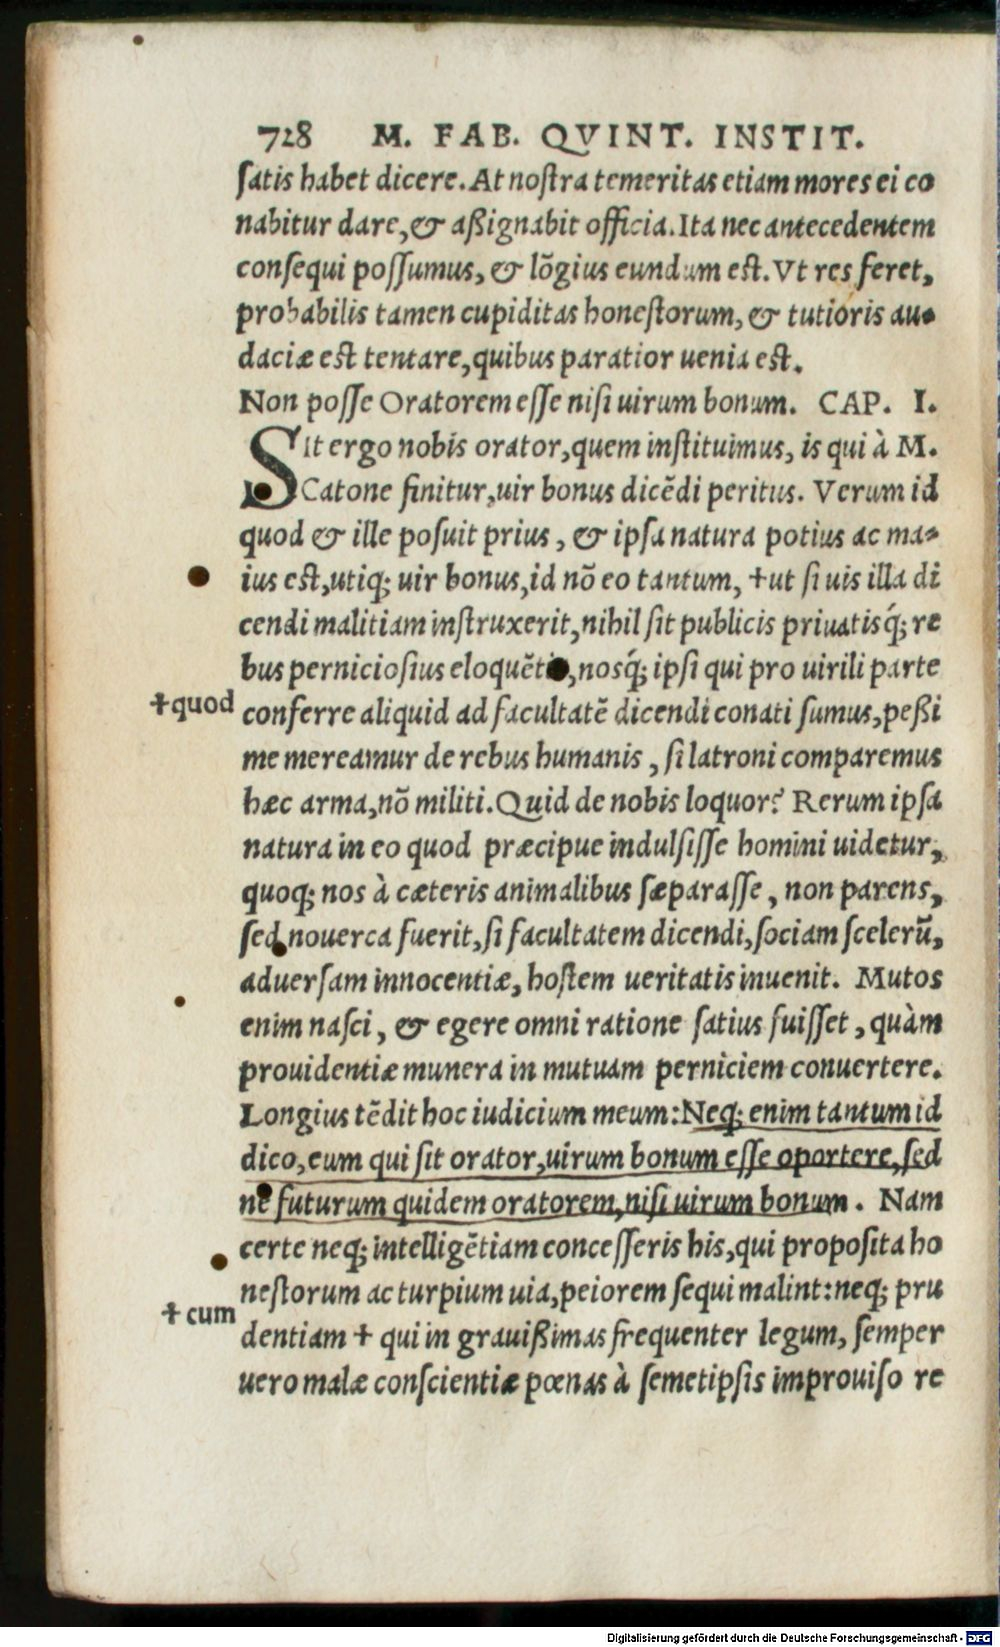 728 M. FAB. QVINT. INSTIT.
ſatis habet dicere. At noſtra temeritas etiam mores ei co
nabitur dare, & aßignabit officia. Ita nec antecedentem
conſequi poſſumus, & lõgius eundum est. Vt res feret,
probabilis tamen cupiditas honeſtorum, & tutioris au-
daciæ est tentare, quibus paratior uenia est.
Non poſſe Oratorem eſſe niſi uirum bonum. CAP. I.
Sit ergo nobis orator, quem inſtituimus, is qui à M.
Catone finitur, uir bonus dicẽdi peritus. Verum id
quod & ille poſuit prius, & ipſa natura potius ac ma-
ius est, utiq; uir bonus, id nõ eo tantum, †ut ſi uis illa di
cendi malitiam inſtruxerit, nihil ſit publicis priuatisq́; re
bus pernicioſius eloquẽtia, nosq́; ipſi qui pro uirili parte
†quod
conferre aliquid ad facultatẽ dicendi conati ſumus, peßi
me mereamur de rebus humanis, ſi latroni comparemus
hæc arma, nõ militi. Quid de nobis loquor? Rerum ipſa
natura in eo quod præcipue indulſiſſe homini uidetur,
quoq; nos à cæteris animalibus ſæparaſſe, non parens,
ſed nouerca fuerit, ſi facultatem dicendi, ſociam ſcelerũ,
aduerſam innocentiæ, hoſtem ueritatis inuenit. Mutos
enim naſci, & egere omni ratione ſatius fuiſſet, quàm
prouidentiæ munera in mutuam perniciem conuertere.
Longius tẽdit hoc iudicium meum: Neq; enim tantum id
dico, eum qui ſit orator, uirum bonum eſſe oportere, ſed
ne futurum quidem oratorem, niſi uirum bonum. Nam
certe neq; intelligẽtiam conceſſeris his, qui propoſita ho
neſtorum ac turpium uia, peiorem ſequi malint: neq; pru
†cum
dentiam † qui in grauißimas frequenter legum, ſemper
uero malæ conſcientiæ pœnas à ſemetipſis improuiſo re
Digitalisierung gefördert durch die Deutsche Forschungsgemeinschaft - DFG